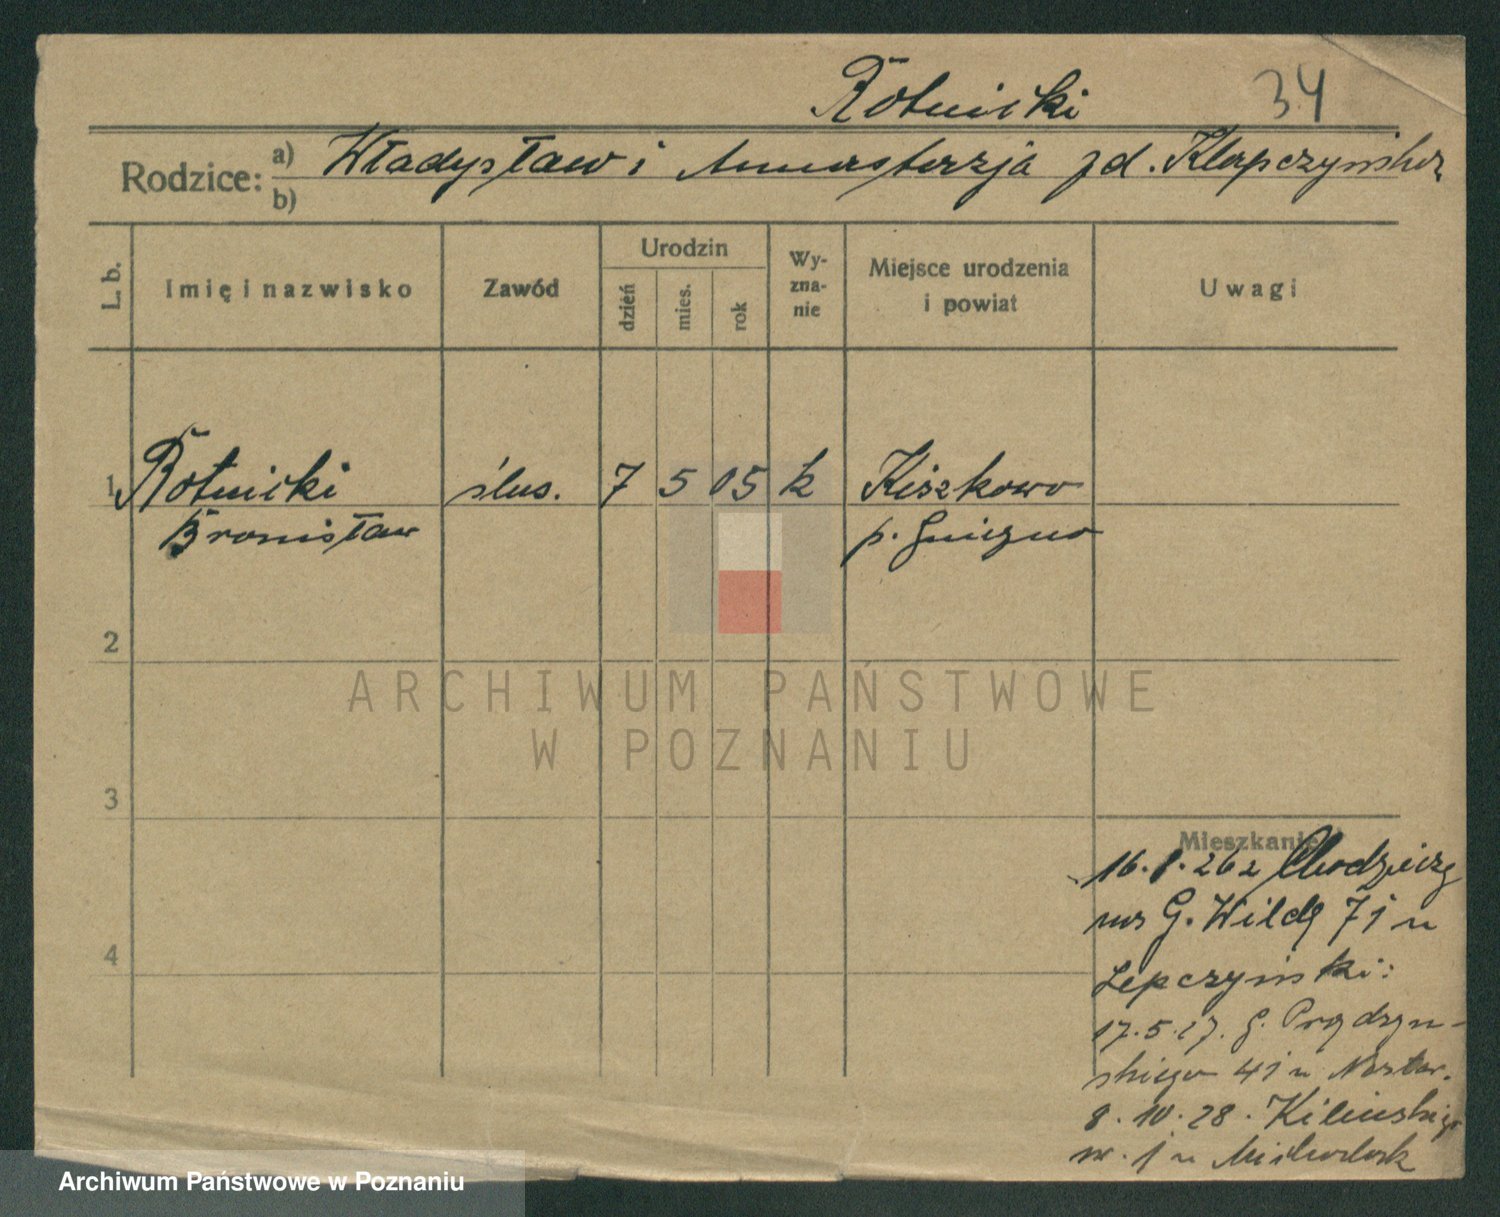 Rotnicki 34
Rodzice: a) Władysław i Anastazja zd. Klapczyńska
b)
L. b. Imię i nazwisko Zawód Urodzin dzień mies. rok Wy-zna-nie Miejsce urodzenia i powiat Uwagi
1 Rotnicki ślus. 7 5 05 k Kiszkowo
Bronisław p. Gniezno
2
3
4
Mieszkanie
16.8.26 z Chodzieży
na G. Wildę 71 u
Lepczyński:
17.5.27. G. Prądzyń-
skiego 41 u
8.10.28. Kilińskiego
nr. 1 u
ARCHIWUM PAŃSTWOWE
W POZNANIU
Archiwum Państwowe w Poznaniu